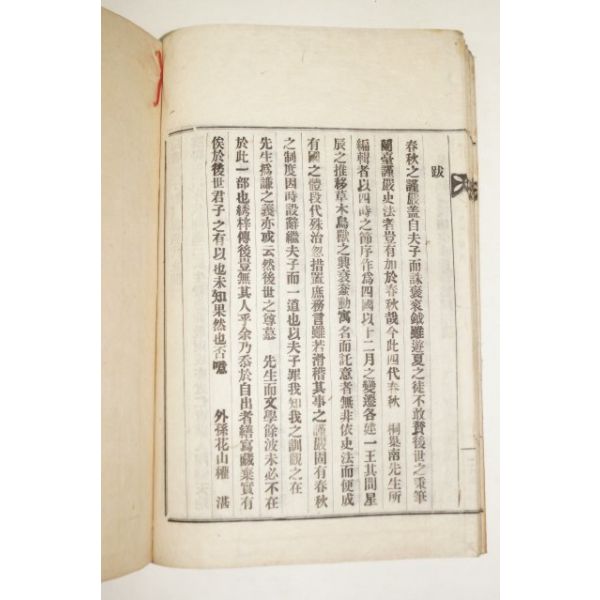 跋
春秋之謹嚴盖自夫子而誅褒袞鉞雖遊夏之徒不敢贊後世之秉筆
蘭臺謹嚴史法者豈有加於春秋哉今此四代春秋 桐巢南先生所
編輯者以四時之節序作爲四國以十二月之變遷各建一王其間星
辰之推移草木鳥獸之興衰蠢動寓名而託意者無非依史法而便成
有國之體段代殊治忽措置庶務言雖若滑稽其事之謹嚴固有春秋
之制度因時設辭繼夫子而一道也以夫子罪我知我之訓觀之在
先生爲謙之義亦或云然後世之尊慕 先生而文學餘波未必不在
於此一部也綉梓傳後豈無其人乎余乃忝於自出者繕寫藏弆實有
俟於後世君子之有以也未知果然也否噫 外孫花山權 湛